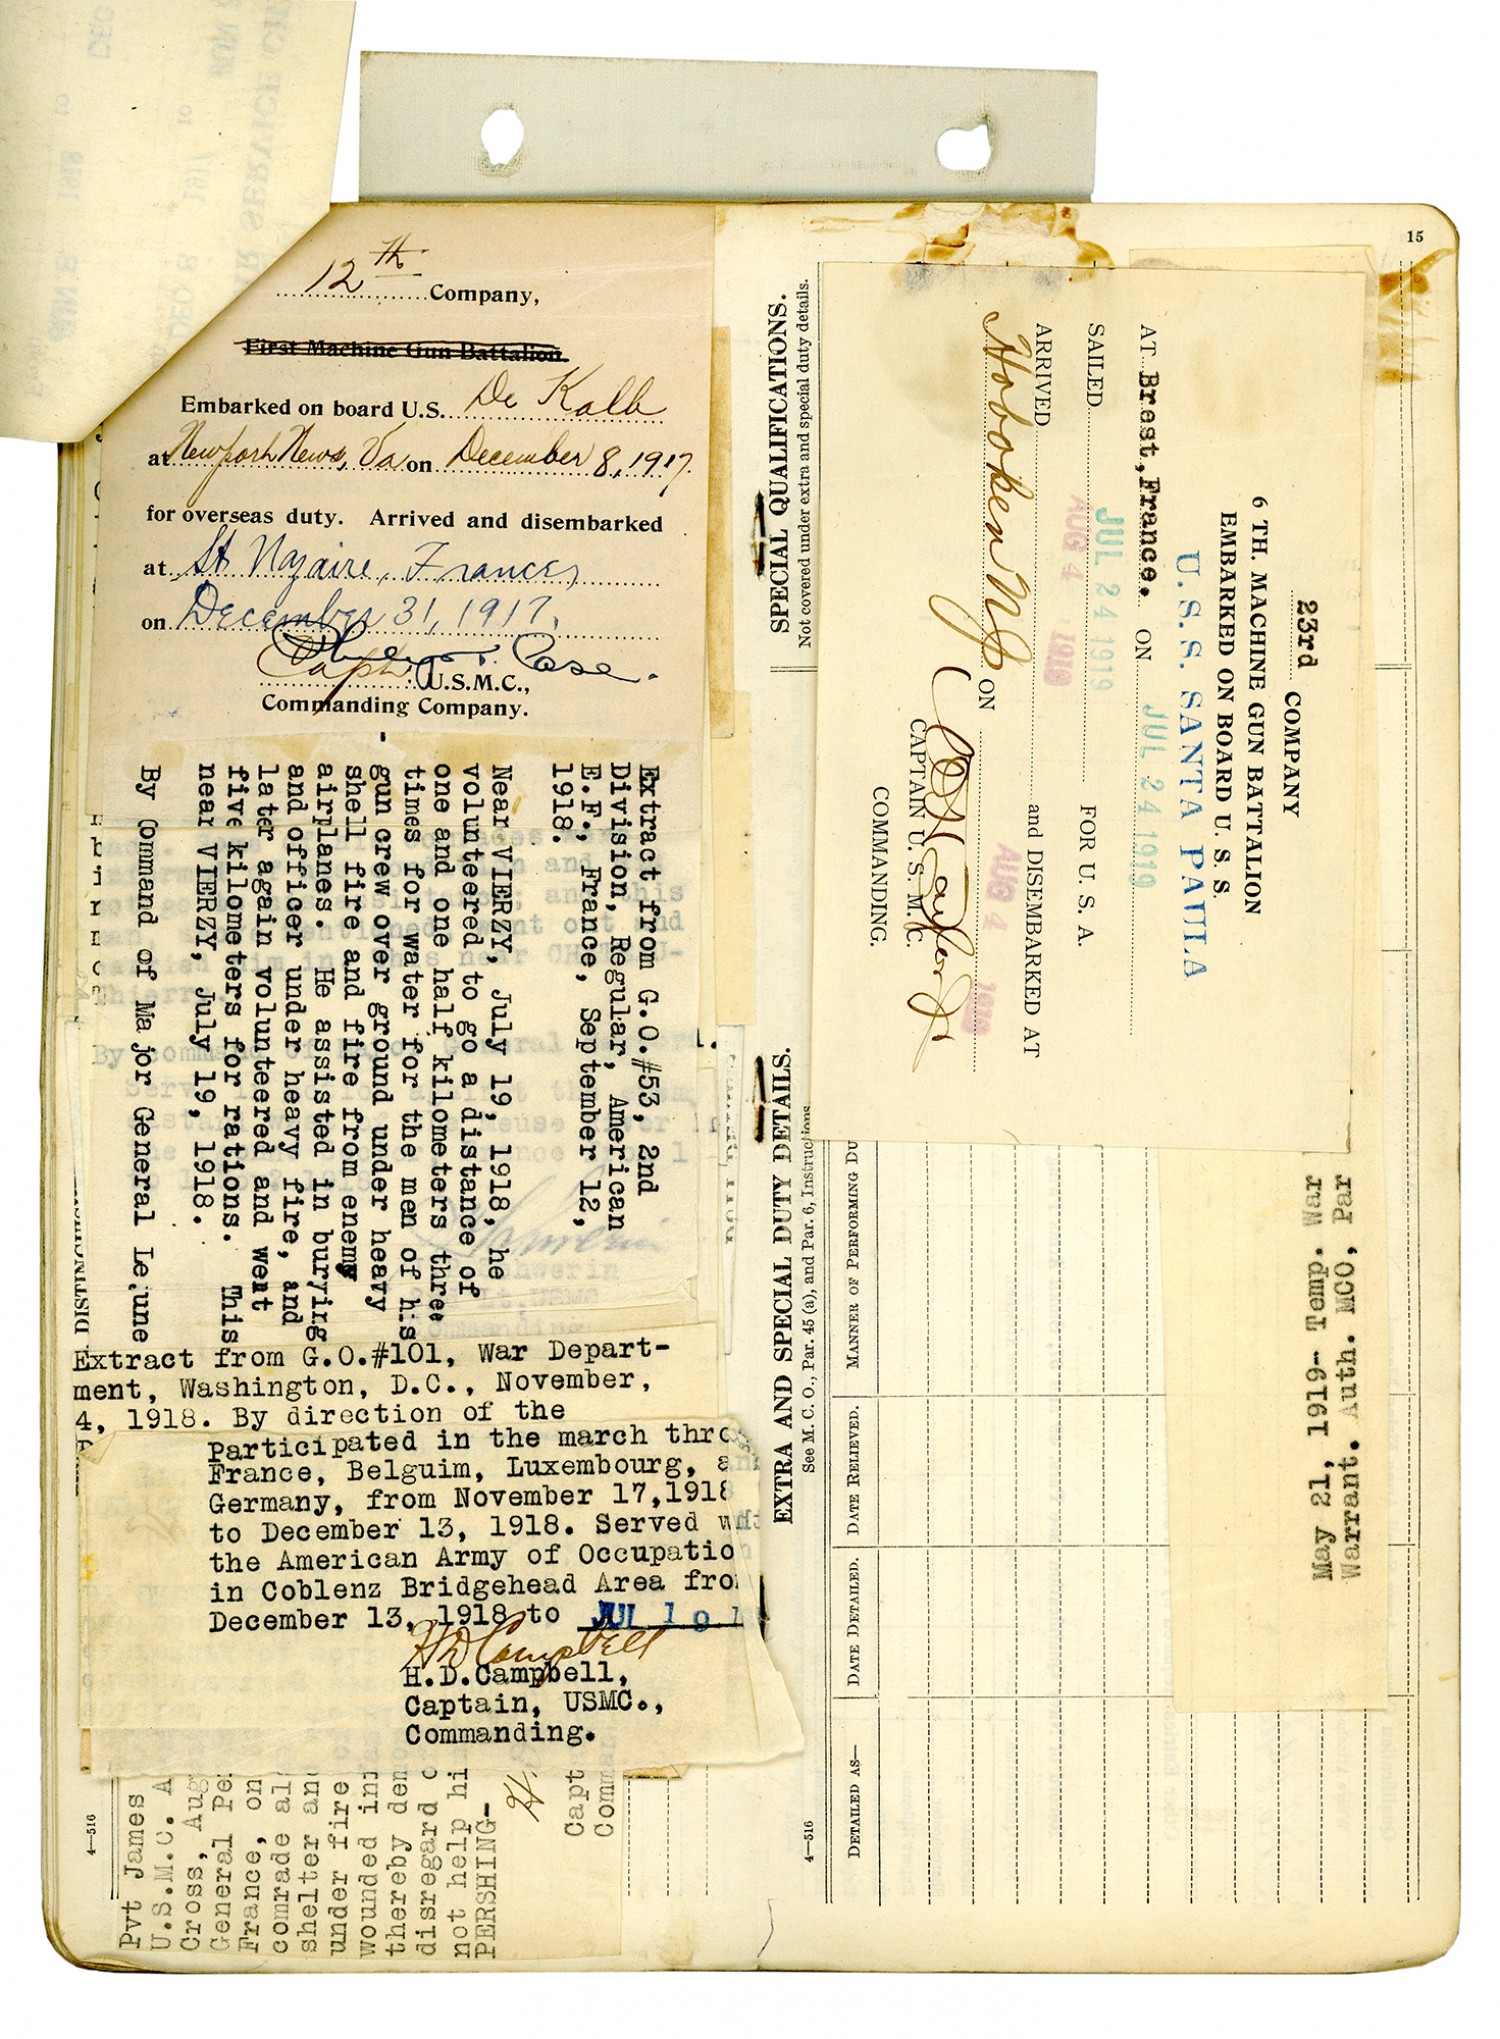 12th Company,
First Machine Gun Battalion
Embarked on board U.S. De Kalb
at Newport News, Va on December 8, 1917.
for overseas duty. Arrived and disembarked
at St Nazaire, France,
on December 31, 1917.
Capt. U.S.M.C.,
Commanding Company.
Extract from G.O.#53, 2nd
Division, Regular, American
E.F., France, September 12,
1918.
Near VIERZY, July 19, 1918, he
volunteered to go a distance of
one and one half kilometers three
times for water for the men of his
gun crew over ground under heavy
shell fire and fire from enemy
airplanes. He assisted in burying
and officer under heavy fire, and
later again volunteered and went
five kilometers for rations. This
near VIERZY, July 19, 1918.
By Command of Major General Lejune
Extract from G.O.#101, War Depart-
ment, Washington, D.C., November,
4, 1918. By direction of the
Participated in the march thro
France, Belguim, Luxembourg, an
Germany, from November 17,1918
to December 13, 1918. Served wit
the American Army of Occupatio
in Coblenz Bridgehead Area fro
December 13, 1918 to JUL 1 91
HDCampbell
H.D.Campbell,
Captain, USMC.,
Commanding.
Pvt James
U.S.M.C. A
Cross, Aug
General Pe
France, on
comrade al
shelter and
under fire
wounded in
thereby den
disregard o
not help hi
PERSHING-
Capt
Comman
4—516
DISTINGUISH
15
SPECIAL QUALIFICATIONS.
Not covered under extra and special duty details.
23rd COMPANY
6 TH. MACHINE GUN BATTALION
EMBARKED ON BOARD U. S. S.
U. S. S. SANTA PAULA
AT Brest, France. ON JUL 24 1919
SAILED JUL 24 1919 FOR U. S. A.
ARRIVED AUG 4 1919 and DISEMBARKED AT
Hoboken NJ ON AUG 4 1919
CAPTAIN U. S. M. C.
COMMANDING.
May 21, 1919- Temp. War
Warrant. Auth. MCO, Par
EXTRA AND SPECIAL DUTY DETAILS.
See M. C. O., Par. 45 (a), and Par. 6, Instructions
DETAILED AS—
DATE DETAILED.
DATE RELIEVED.
MANNER OF PERFORMING DU
4—516